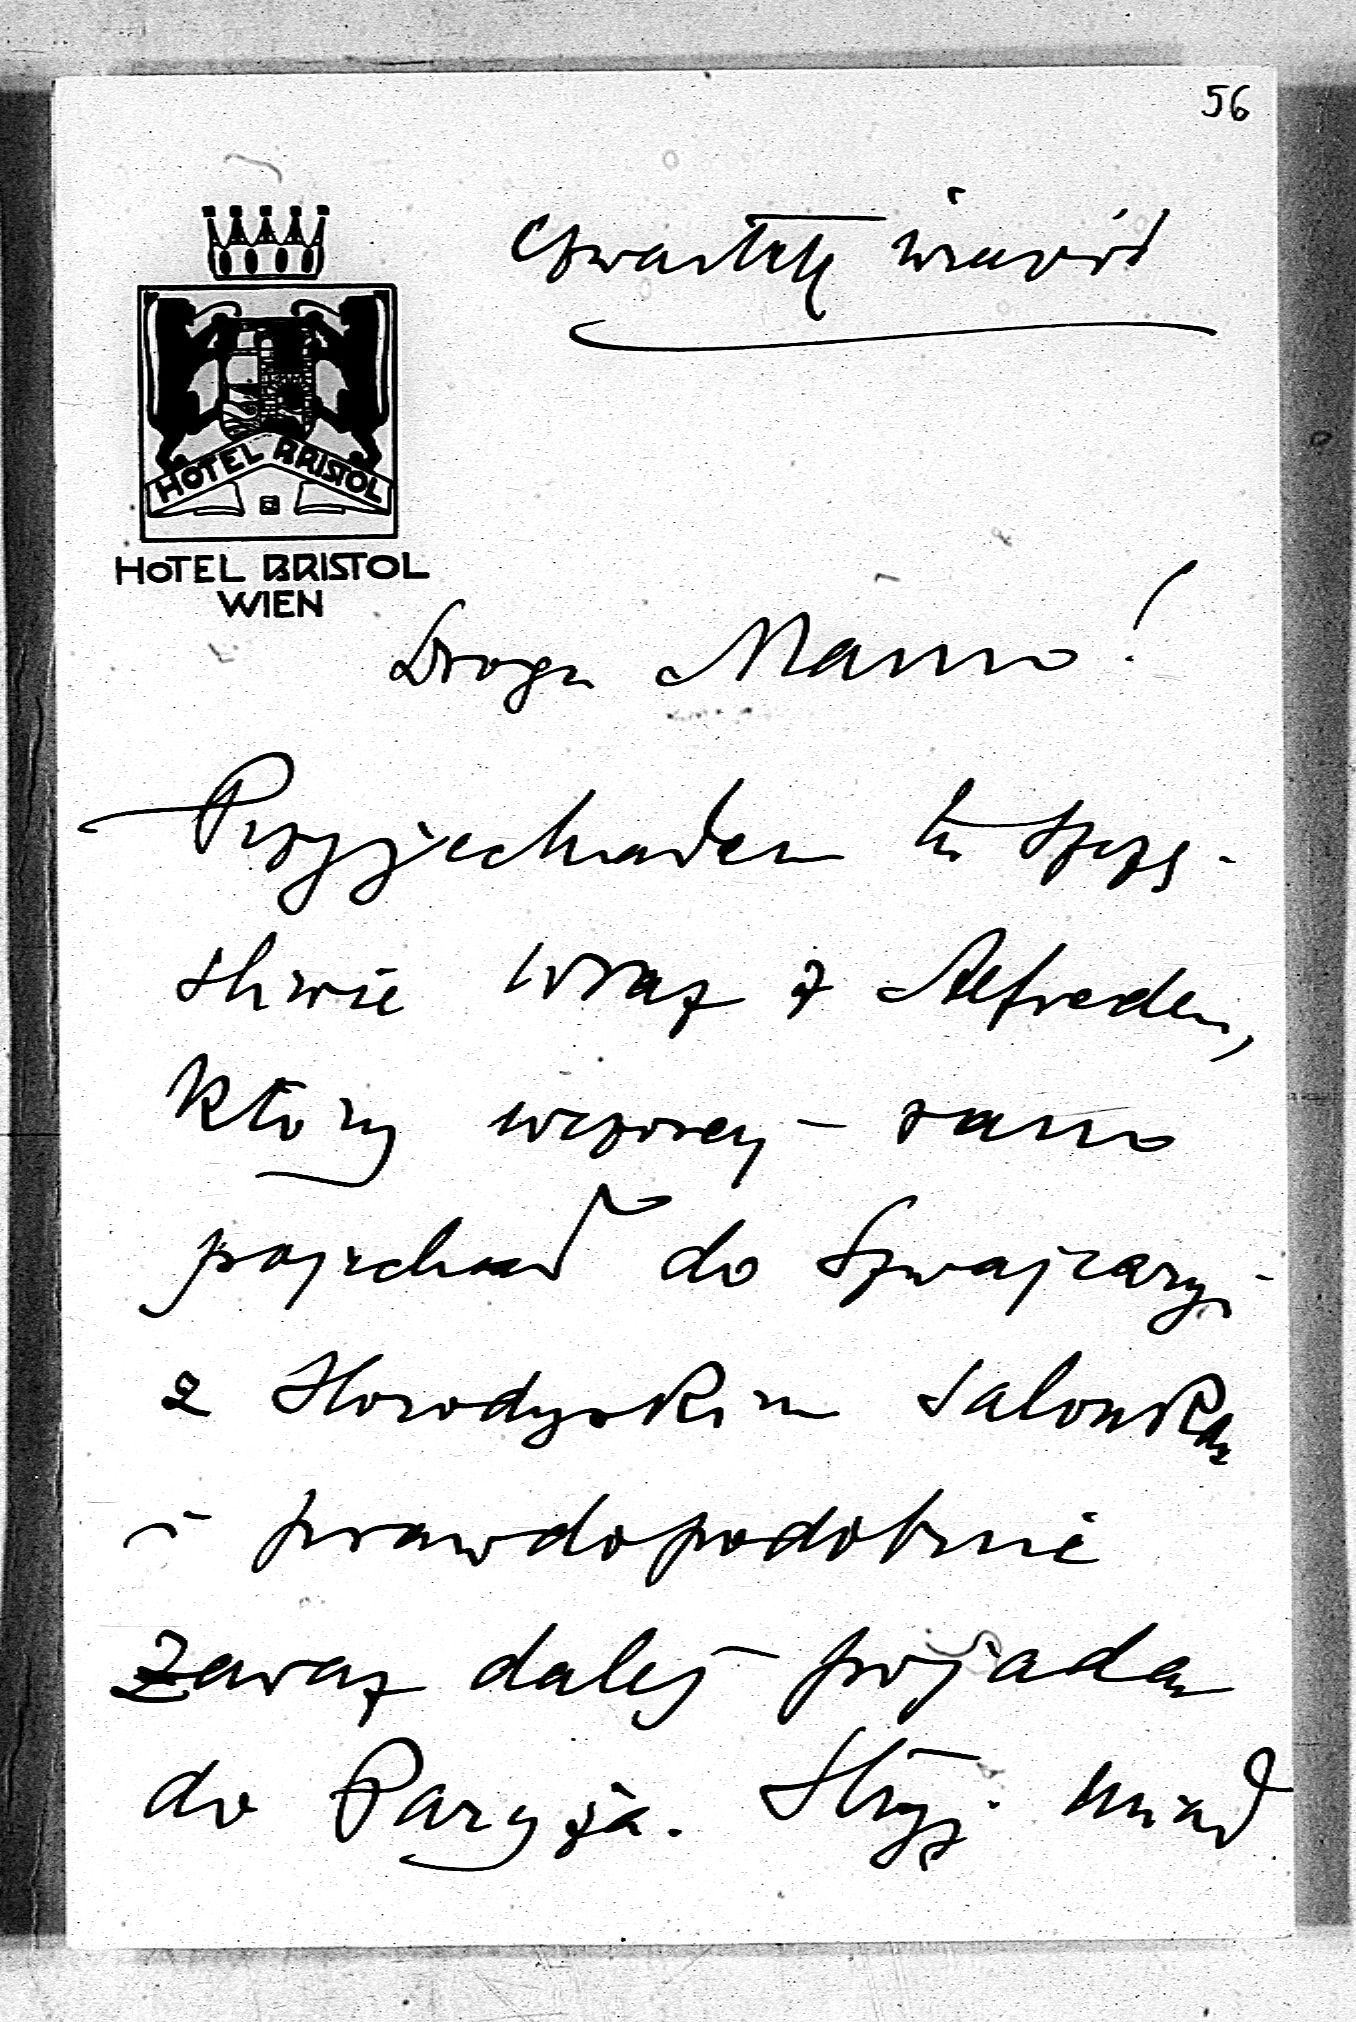 56
Czwartek wieczór
HOTEL BRISTOL
HOTEL BRISTOL
WIEN
Droga Mamo!
Przyjechałem tu szczę-
śliwie wraz z Alfredem,
który wczoraj rano
pojechał do Szwajcaryi
z Horodyskim salonką
i prawdopodobnie
zaraz dalej pojadą
do Paryża. Stryj miał